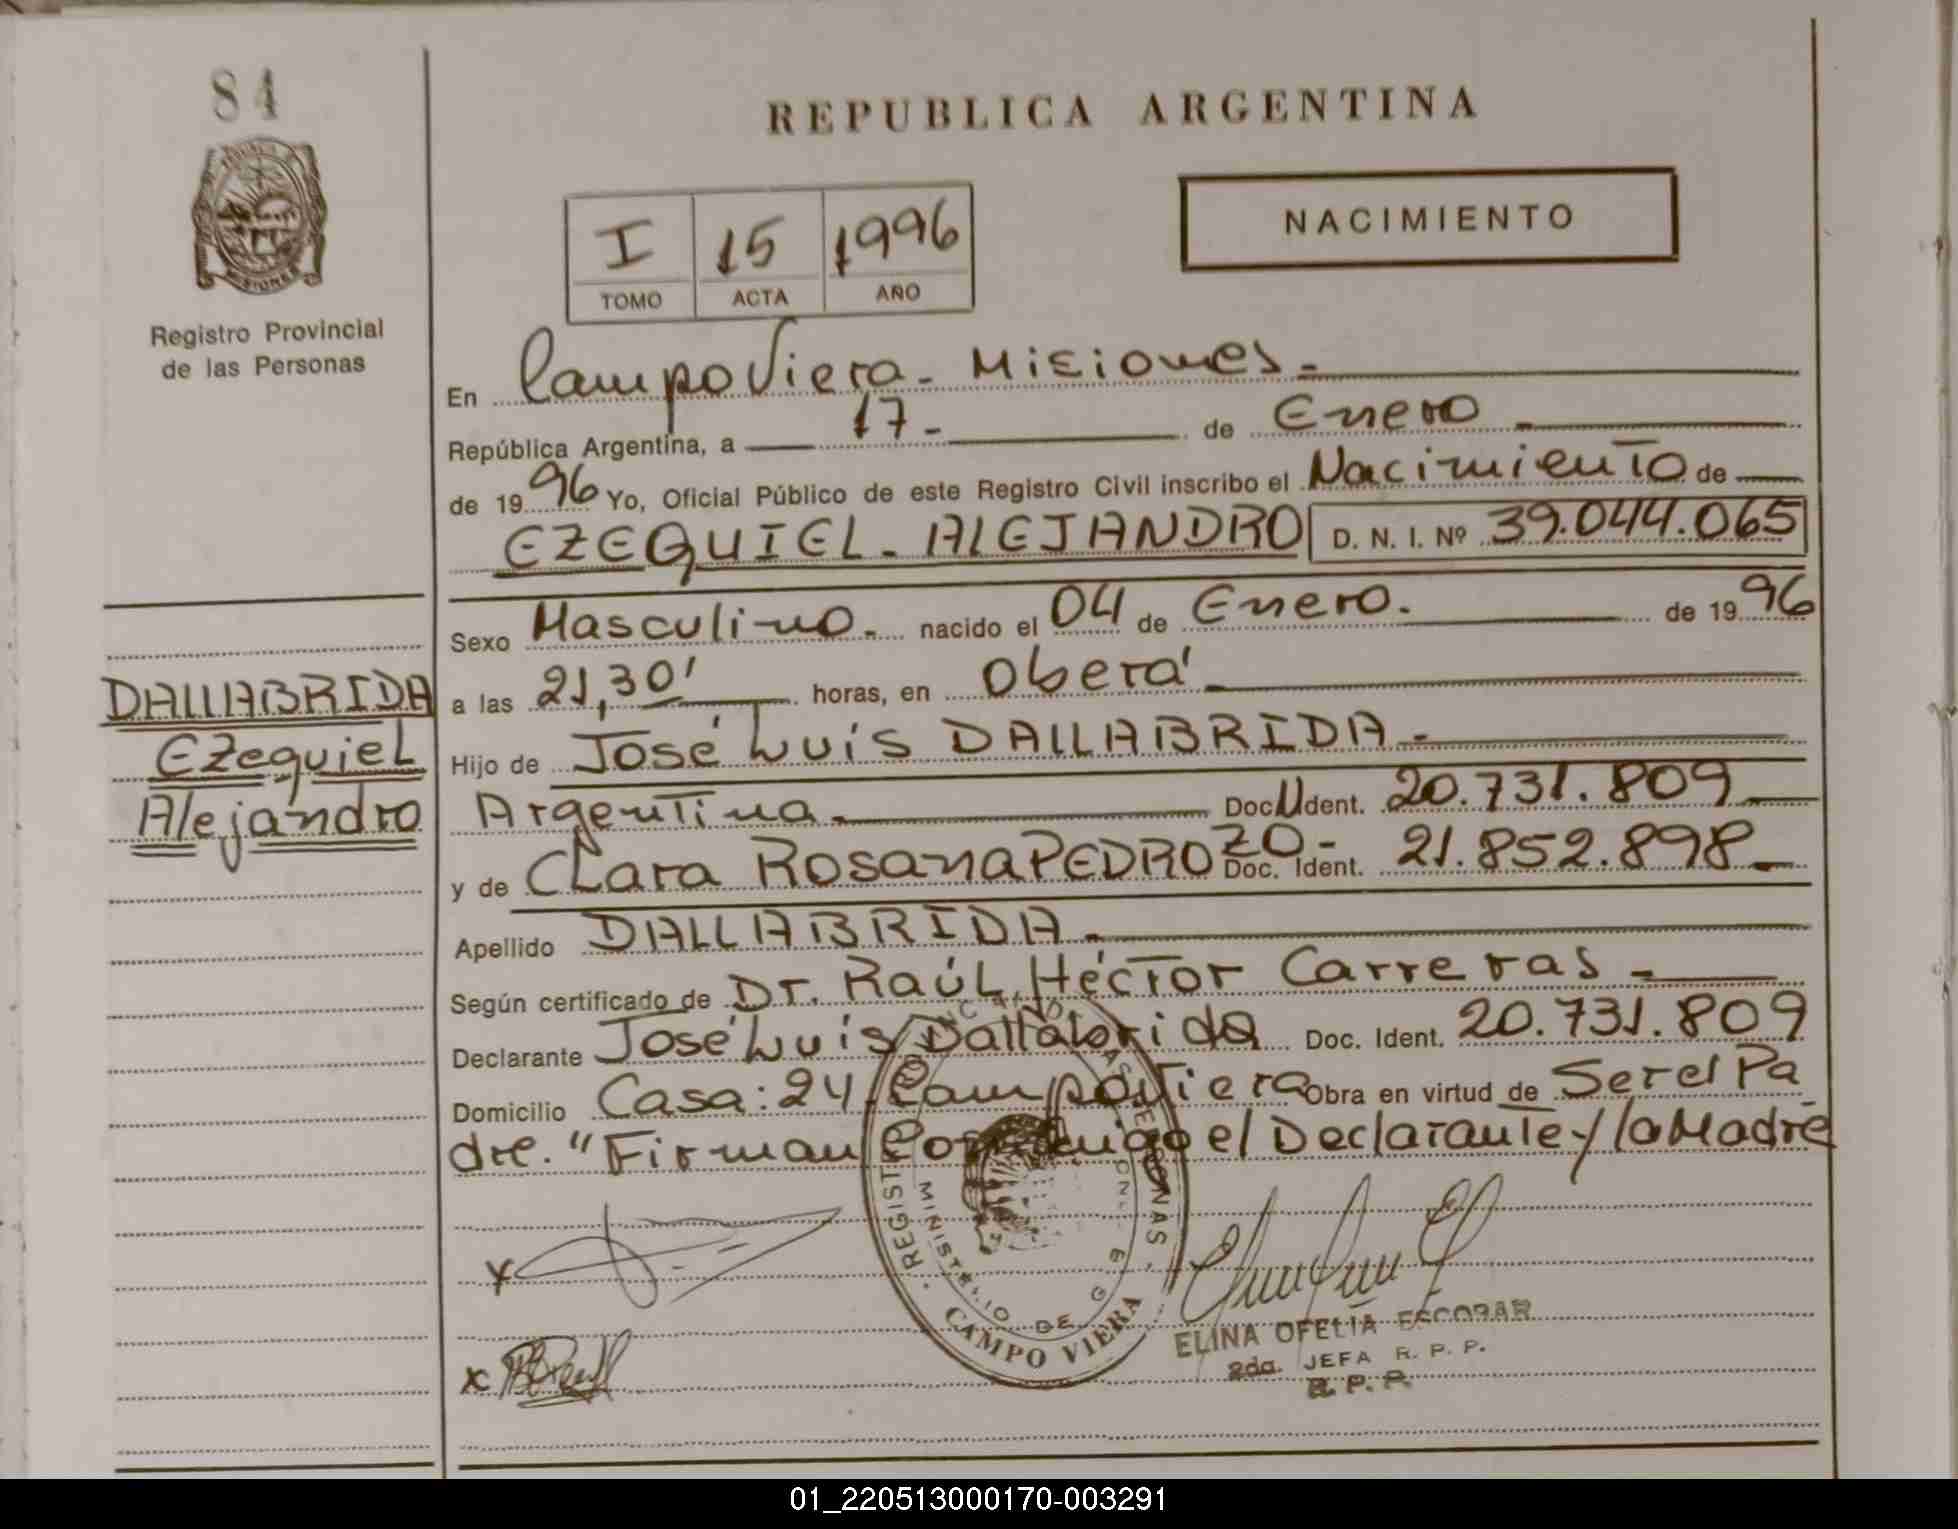 84
REPUBLICA ARGENTINA
I 15 1996
TOMO ACTA AÑO
NACIMIENTO
Registro Provincial
de las Personas
En Campo Viera - Misiones.-
República Argentina, a 17.- de Enero
de 1996 Yo, Oficial Público de este Registro Civil inscribo el Nacimiento de
EZEQUIEL - ALEJANDRO D. N. I. Nº 39.044.065
Sexo Masculino.- nacido el 04 de Enero. de 1996
a las 21,30' horas, en Oberá
Hijo de José Luís DALLABRIDA.-
Argentina.- Doc. Ident. 20.731.809
y de Clara Rosana PEDROZO.- Doc. Ident. 21.852.898
Apellido DALLABRIDA.-
Según certificado de Dr. Raúl Héctor Carreras.-
Declarante José Luís Dallabrida Doc. Ident. 20.731.809
Domicilio Casa: 24 Campo Viera Obra en virtud de Ser el Pa
dre. "Firman Conmigo el Declarante y la Madre
DALLABRIDA
Ezequiel
Alejandro
MINISTERIO DE G
CAMPO VIERA
ELINA OFELIA ESCOBAR
2da. JEFA R. P. P.
R. P. P.
01_220513000170-003291